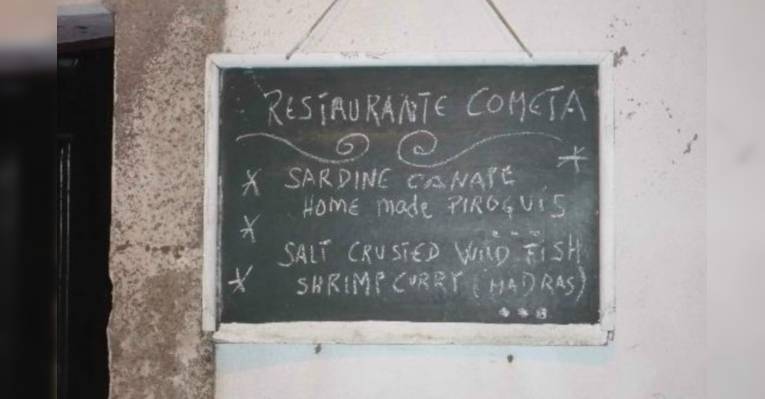 RESTAURANTE COMETA
SARDINE CANAPE
HOME made PIROGUIS
SALT CRUSTED WILD FISH
SHRIMP CURRY (MADRAS)